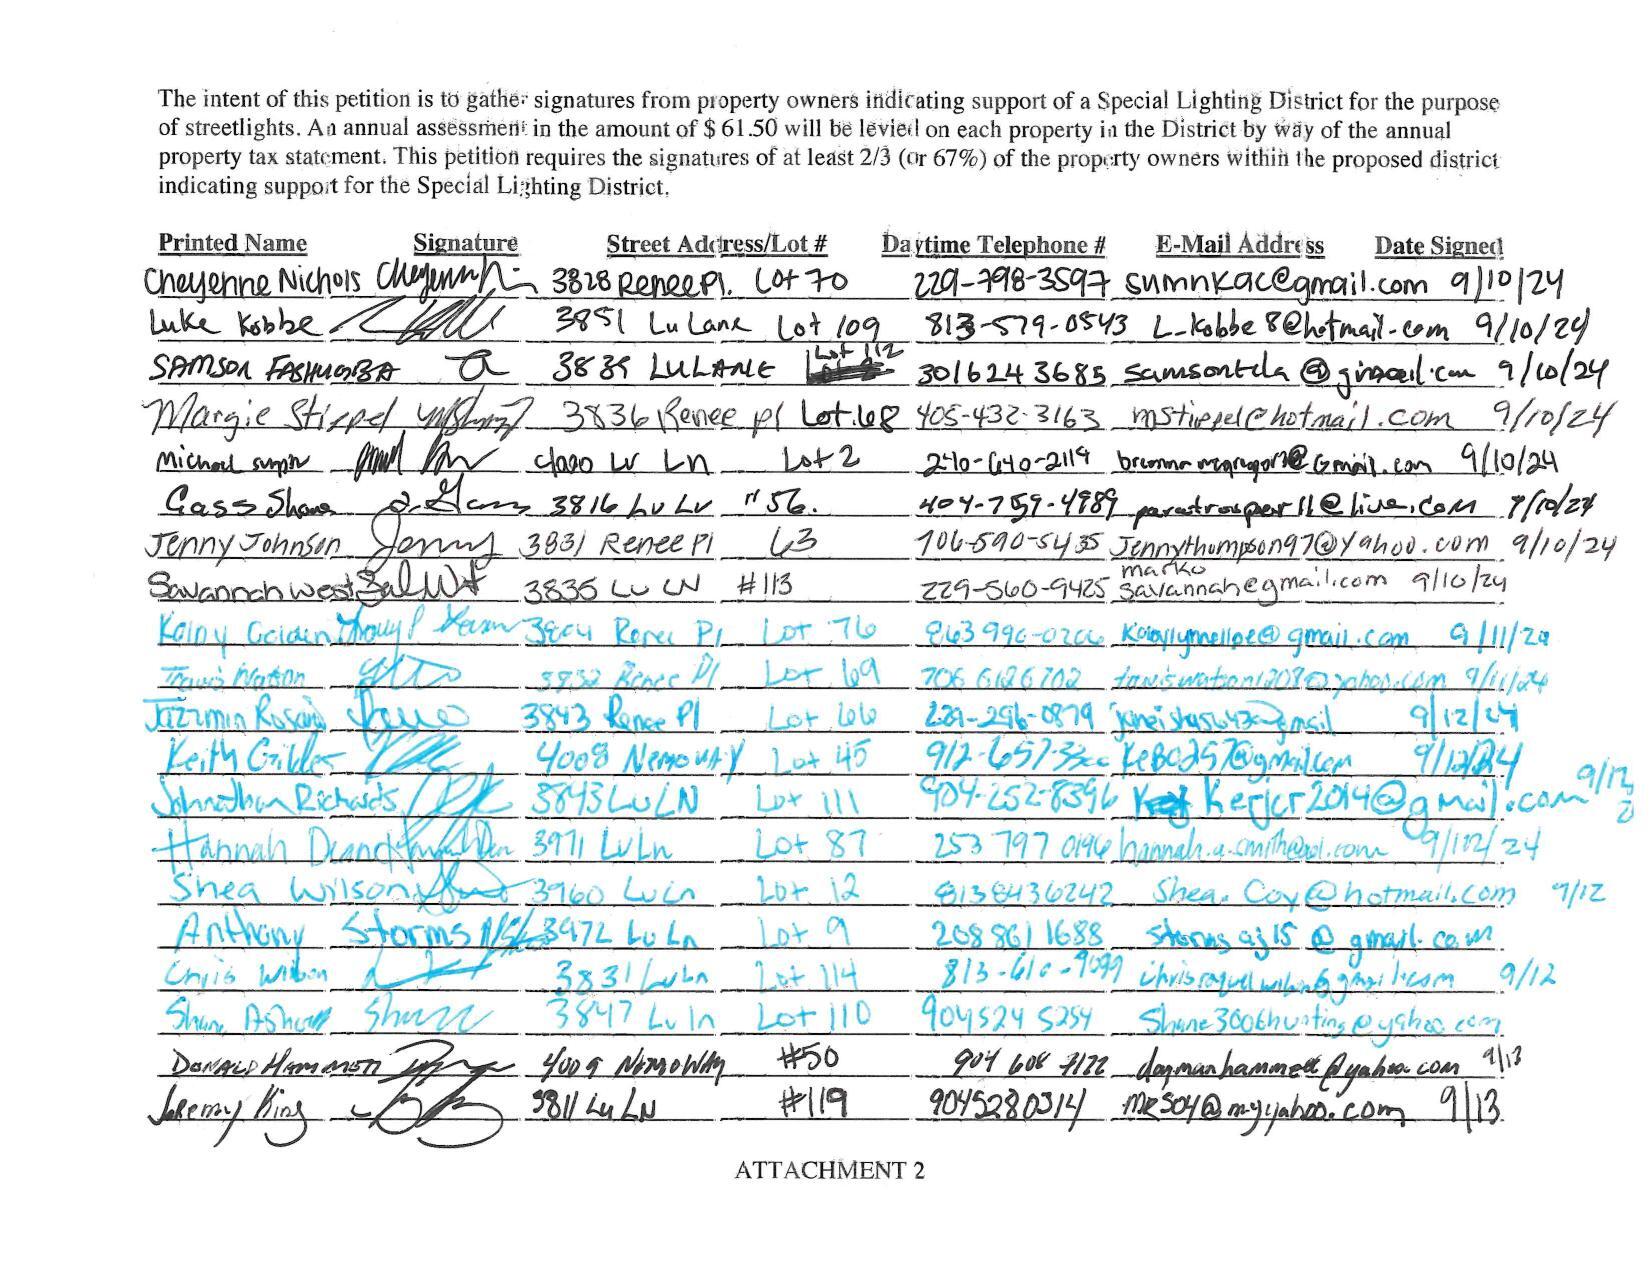 The intent of this petition is to gather signatures from property owners indicating support of a Special Lighting District for the purpose
of streetlights. An annual assessment in the amount of $ 61.50 will be levied on each property in the District by way of the annual
property tax statement. This petition requires the signatures of at least 2/3 (or 67%) of the property owners within the proposed district
indicating support for the Special Lighting District.
Printed Name Signature Street Address/Lot # Daytime Telephone # E-Mail Address Date Signed
Cheyenne Nichols 3828 Renee Pl. Lot 70 229-798-3597 sumnkac@gmail.com 9/10/24
Luke Kobbe 3851 Lu Lane Lot 109 813-579-0543 L-Kobbe8@hotmail.com 9/10/24
SAMSON FASHUGBA 3839 LULANE Lot 112 301 624 3685 9/10/24
Margie Stippel 3836 Renee pl Lot 68 405-432-3163 mstippel@hotmail.com 9/10/24
Michael 4020 LU LN Lot 2 270-640-2119 9/10/24
Cass Shane 3816 Lu Lv "56. 404-759-4989 paratrooper11@live.com 9/10/24
Jenny Johnson Jenny 3831 Renee Pl 63 706-590-5435 Jennythompson97@yahoo.com 9/10/24
Savannah West 3835 LU LN #113 229-560-9425 marko savannah@gmail.com 9/10/24
Golden 3804 Renee Pl Lot 76 9/11/24
Travis Watson 3832 Renee Pl Lot 69 706 6126702 traviswatson1208@yahoo.com 9/11/24
Jazzmin 3843 Renee Pl Lot 66 229-296-0879 9/12/24
Keith 4008 Nemo WAY Lot 45 KeBo257@gmail.com 9/12/24
Johnathan Richards 3843 Lu LN Lot 111 904-252-8396 Kerjcr2014@gmail.com 9/12
Hannah 3971 Lu Ln Lot 87 253 797 0196 hannah.a.smith@aol.com 9/12/24
Shea Wilson 3960 Lu Ln Lot 12 8138436242 Shea.Coy@hotmail.com 9/12
Anthony Storms 3972 Lu Ln Lot 9 208 861 1688 stormsaj15@gmail.com
Chris Wilson 3831 Lu Ln Lot 114 813-610-9099 9/12
Shane 3847 Lu ln Lot 110 904524 5254 Shane3006hunting@yahoo.com
DONALD HAMMETT 4009 NEMO WAY #50 904 608 7122 daymanhammett@yahoo.com 9/13
Jeremy King 3811 Lu LN #119 9045280314 MRS04@myyahoo.com 9/13
ATTACHMENT 2